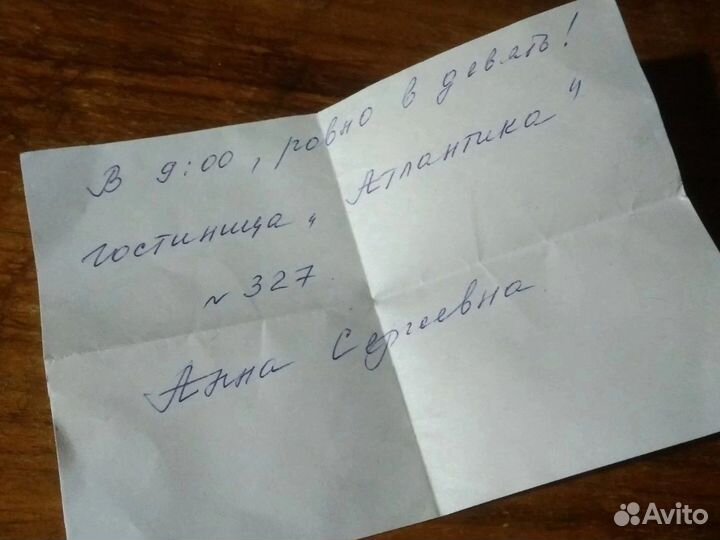 В 9:00, ровно в девять!
гостиница „Атлантика"
~ 327.
Анна Сергеевна.
Avito